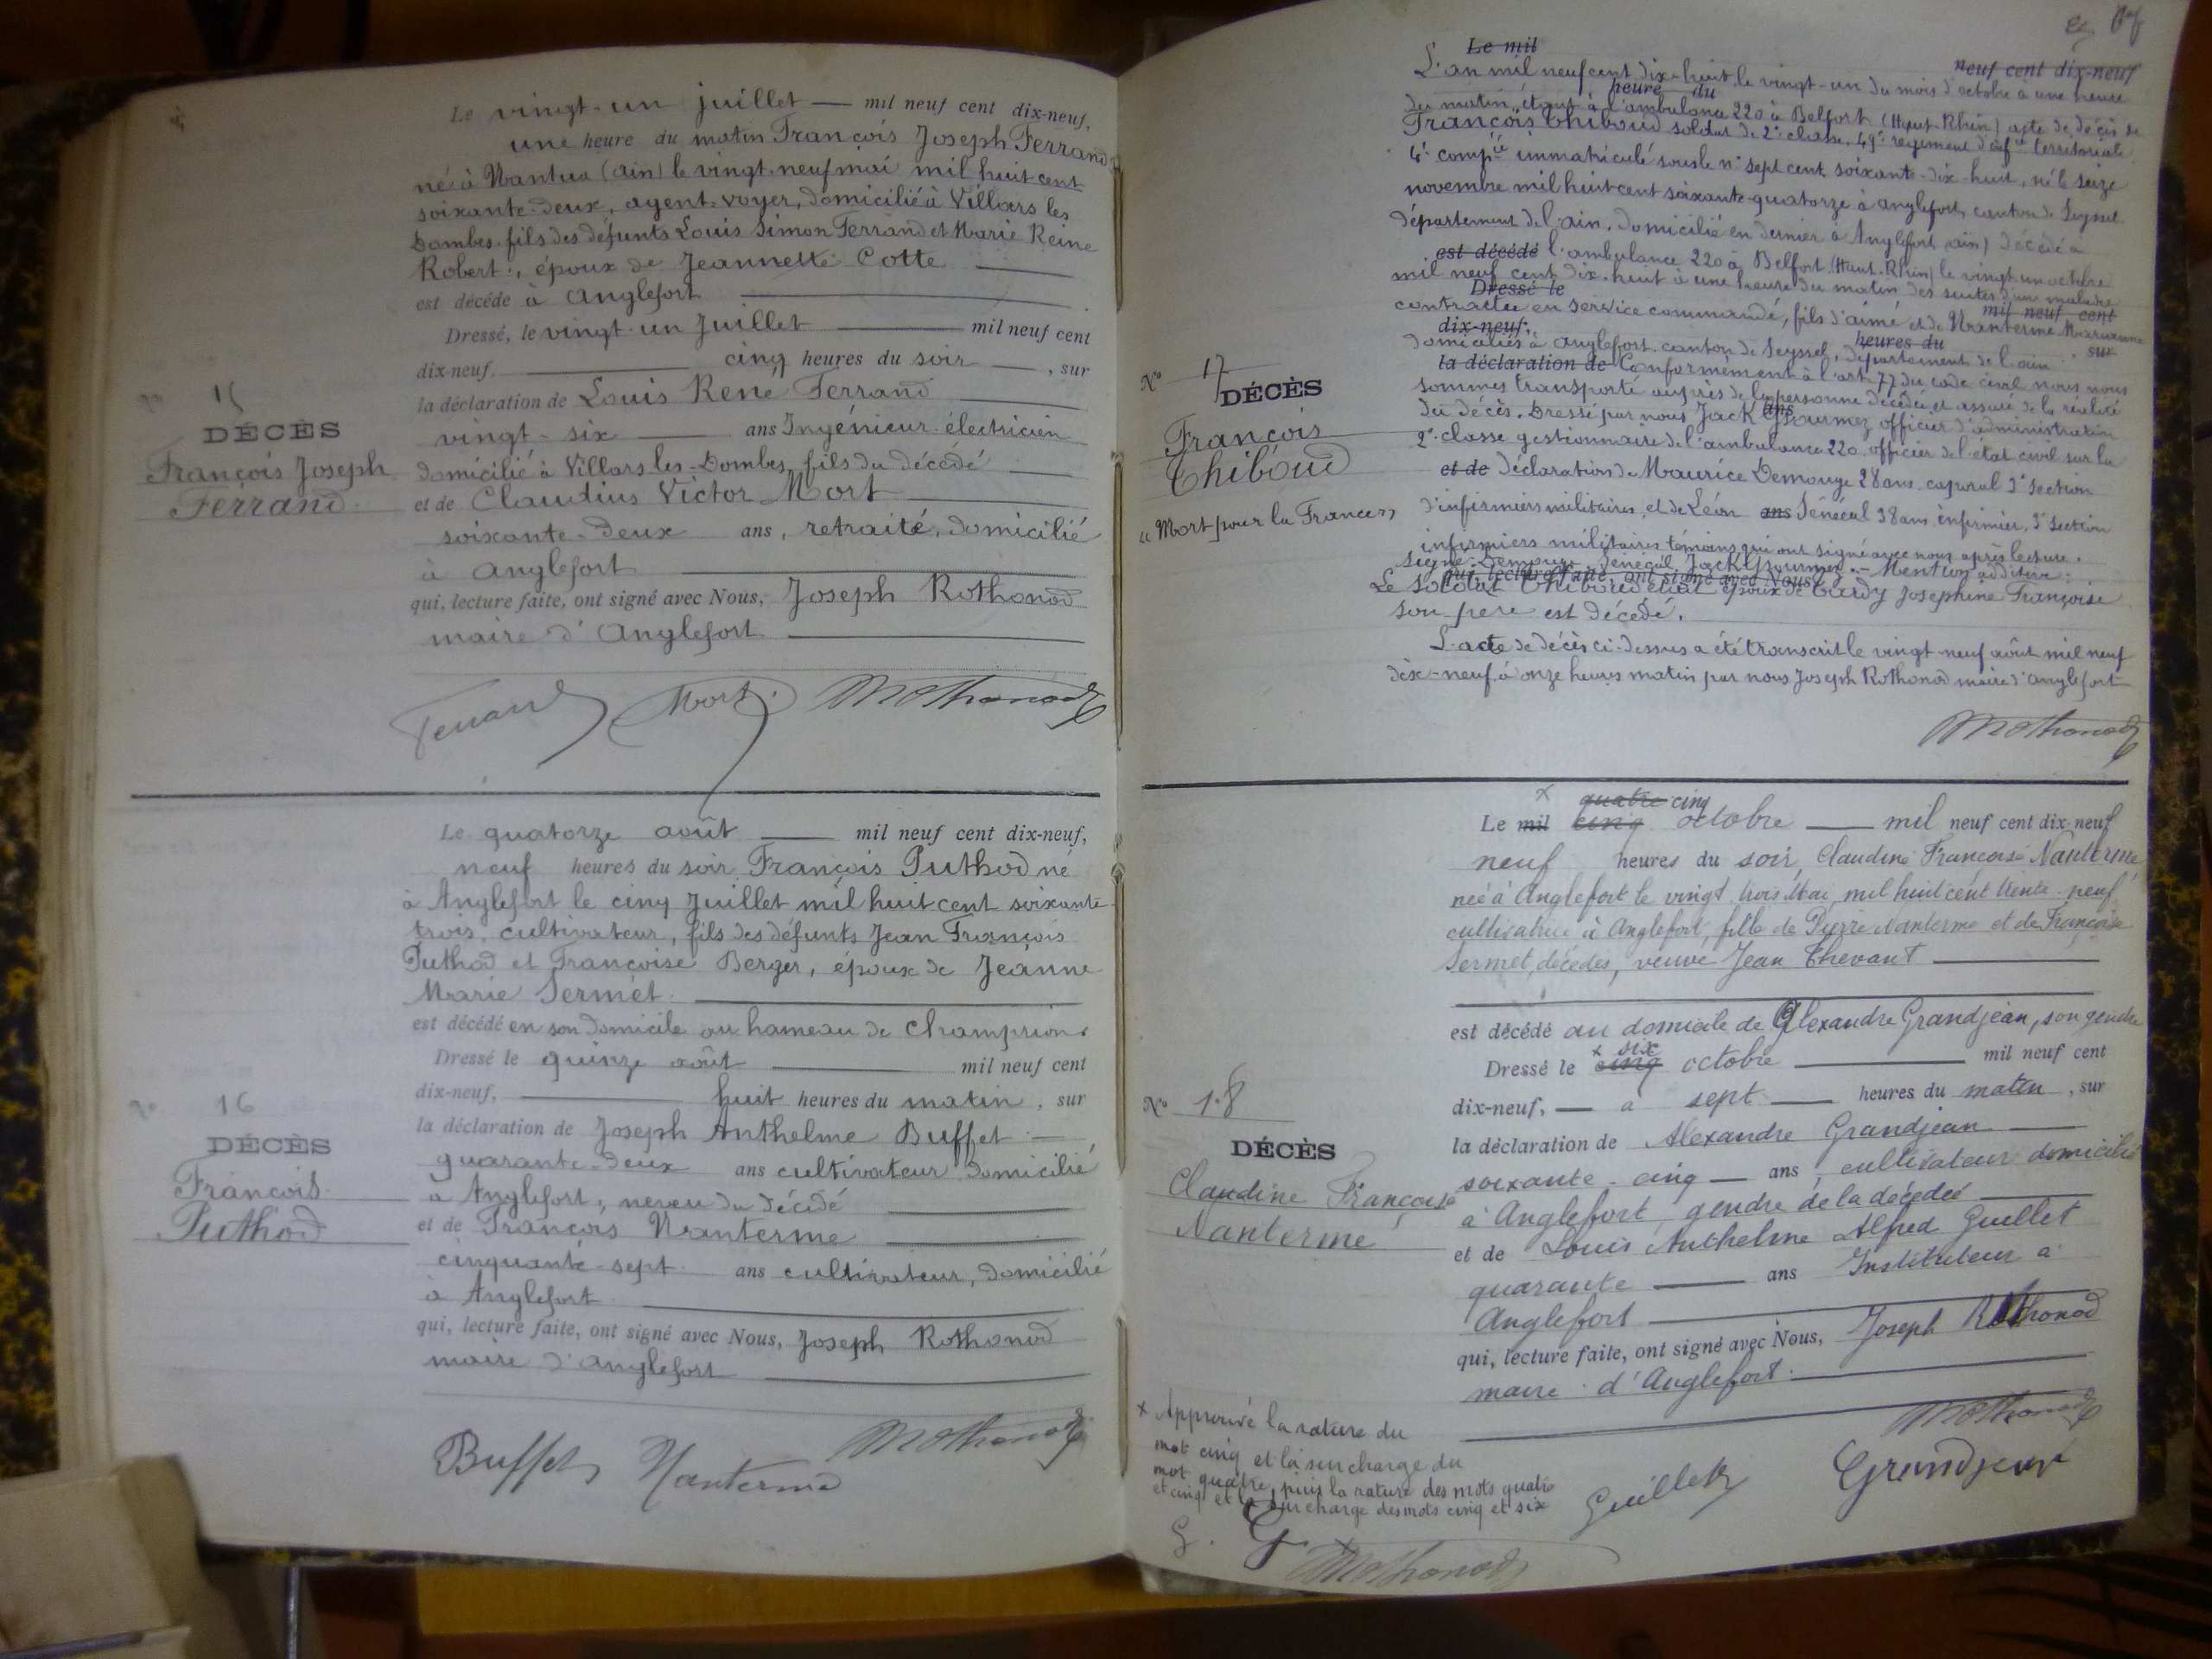 Le vingt-un juillet — mil neuf cent dix-neuf,
une heure du matin François Joseph Ferrand
né à Nantua (ain) le vingt-neuf mai mil huit cent
soixante-deux, agent-voyer, domicilié à Villars les
Dombes, fils des défunts Louis Simon Ferrand et Marie Reine
Robert, époux de Jeannette Cotte
est décédé à Anglefort
Dressé, le vingt-un Juillet mil neuf cent
dix-neuf, cinq heures du soir, sur
la déclaration de Louis René Ferrand
vingt-six ans Ingénieur-électricien
domicilié à Villars les-Dombes, fils du décédé
et de Claudius Victor Mort
soixante-deux ans, retraité, domicilié
à Anglefort
qui, lecture faite, ont signé avec Nous, Joseph Rothonod
maire d'Anglefort
No 15
DÉCÈS
François Joseph
Ferrand
Ferrand Mort JRothonod
Le quatorze août mil neuf cent dix-neuf,
neuf heures du soir, François Puthod né
à Anglefort le cinq Juillet mil huit cent soixante-
trois, cultivateur, fils des défunts Jean François
Puthod et Françoise Berger, époux de Jeanne
Marie Sermet.
est décédé en son domicile au hameau de Champrion.
Dressé le quinze août mil neuf cent
dix-neuf, huit heures du matin, sur
la déclaration de Joseph Anthelme Buffet
quarante-deux ans cultivateur domicilié
à Anglefort, neveu du décédé
et de François Nanterme
cinquante-sept ans cultivateur, domicilié
à Anglefort
qui, lecture faite, ont signé avec Nous, Joseph Rothonod
maire d'Anglefort
No 16
DÉCÈS
François
Puthod
Buffet Nanterme JRothonod
Le mil neuf cent dix-neuf
L'an mil neuf cent dix-huit le vingt-un du mois d'octobre à une heure
heure du
du matin, étant à l'ambulance 220 à Belfort (Haut-Rhin) acte de décès de
François Thiboud soldat de 2e classe, 49e régiment d'infie territoriale
4e compie immatriculé sous le no sept cent soixante-dix-huit, né le seize
novembre mil huit cent soixante-quatorze à Anglefort, canton de Seyssel
département de l'ain, domicilié en dernier à Anglefort (ain) décédé à
est décédé l'ambulance 220 à Belfort (Haut-Rhin) le vingt un octobre
mil neuf cent dix-huit à une heure du matin des suites d'une maladie
Dressé le mil neuf cent
contractée en service commandé, fils d'aimé et de Nanterme Marianne
dix-neuf, heures du , sur
domiciliés à Anglefort canton de Seyssel, département de l'ain
la déclaration de Conformément à l'art. 77 du code civil nous nous
sommes transporté auprès de la personne décédée et assuré de la réalité
ans
du décès. Dressé par nous Jack Gourmez officier d'administration
2e classe gestionnaire de l'ambulance 220, officier de l'état civil sur la
et de déclaration de Maurice Demouge 28 ans caporal 3e section
d'infirmiers militaires, et de Léon ans Sénécal 38 ans, infirmier, 3e section
infirmiers militaires témoins qui ont signé avec nous après lecture.
Signé: Demouge, Sénécal, Jack Gourmez. - Mention additive:
qui, lecture faite, ont signé avec Nous
Le soldat Thiboud était époux de Tardy Joséphine Françoise
son père est décédé.
L'acte de décès ci-dessus a été transcrit le vingt-neuf août mil neuf
dix-neuf à onze heures matin par nous Joseph Rothonod maire d'Anglefort
JRothonod
No 17
DÉCÈS
François
Thiboud
"Mort pour la France"
x quatre cinq
Le mil cinq octobre mil neuf cent dix neuf
neuf heures du soir, Claudine Françoise Nanterme
née à Anglefort le vingt trois Mai mil huit cent trente-neuf
cultivatrice à Anglefort, fille de Pierre Nanterme et de Françoise
Sermet, décédés, veuve Jean Thevant
est décédé au domicile de Alexandre Grandjean, son gendre
x six
Dressé le cinq octobre mil neuf cent
dix-neuf, à sept heures du matin, sur
la déclaration de Alexandre Grandjean
soixante-cinq ans, cultivateur domicilié
à Anglefort, gendre de la décédée
et de Louis Anthelme Alfred Guillet
quarante ans Instituteur à
Anglefort
qui, lecture faite, ont signé avec Nous, Joseph Rothonod
maire d'Anglefort.
No 18
DÉCÈS
Claudine Françoise
Nanterme
x Approuvé la rature du
mot cinq et la surcharge du
mot quatre, puis la rature des mots quatre
et cinq et la surcharge des mots cinq et six
G. G JRothonod
JRothonod
Guillet Grandjean